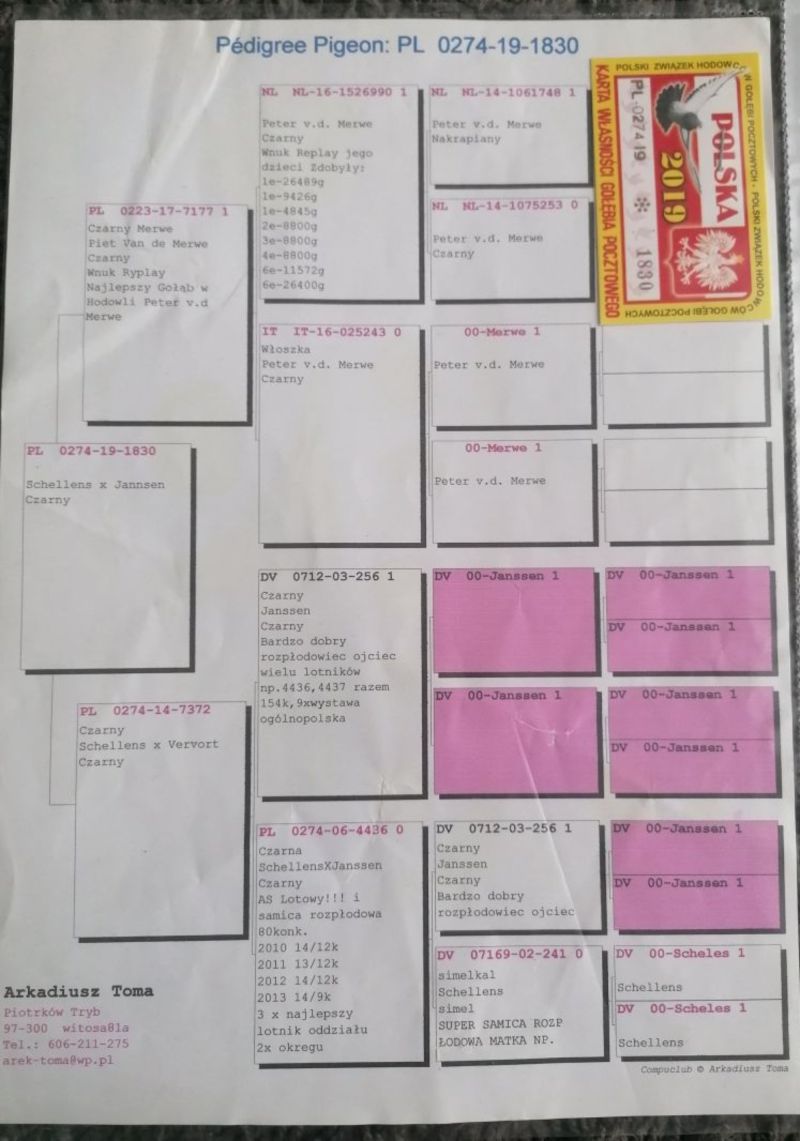 Pédigree Pigeon: PL 0274-19-1830
POLSKI ZWIĄZEK HODOWCÓW GOŁĘBI POCZTOWYCH - POLSKI ZWIĄZEK HODOWCÓW GOŁĘBI POCZTOWYCH
KARTA WŁASNOŚCI GOŁĘBIA POCZTOWEGO
PL-0274 19 * 1830
POLSKA
2019
NL NL-16-1526990 1
Peter v.d. Merwe
Czarny
Wnuk Replay jego
dzieci Zdobyły:
1e-26489g
1e-9426g
1e-4845g
2e-8800g
3e-8800g
4e-8800g
6e-11572g
6e-26400g
NL NL-14-1061748 1
Peter v.d. Merwe
Nakrapiany
NL NL-14-1075253 0
Peter v.d. Merwe
Czarny
PL 0223-17-7177 1
Czarny Merwe
Piet Van de Merwe
Czarny
Wnuk Ryplay
Najlepszy Gołąb w
Hodowli Peter v.d
Merwe
IT IT-16-025243 0
Włoszka
Peter v.d. Merwe
Czarny
00-Merwe 1
Peter v.d. Merwe
00-Merwe 1
Peter v.d. Merwe
PL 0274-19-1830
Schellens x Jannsen
Czarny
DV 0712-03-256 1
Czarny
Janssen
Czarny
Bardzo dobry
rozpłodowiec ojciec
wielu lotników
np.4436,4437 razem
154k,9xwystawa
ogólnopolska
DV 00-Janssen 1
DV 00-Janssen 1
DV 00-Janssen 1
DV 00-Janssen 1
DV 00-Janssen 1
DV 00-Janssen 1
PL 0274-14-7372
Czarny
Schellens x Vervort
Czarny
PL 0274-06-4436 0
Czarna
SchellensXJanssen
Czarny
AS Lotowy!!! i
samica rozpłodowa
80konk.
2010 14/12k
2011 13/12k
2012 14/12k
2013 14/9k
3 x najlepszy
lotnik oddziału
2x okregu
DV 0712-03-256 1
Czarny
Janssen
Czarny
Bardzo dobry
rozpłodowiec ojciec
DV 00-Janssen 1
DV 00-Janssen 1
DV 07169-02-241 0
simelkal
Schellens
simel
SUPER SAMICA ROZP
ŁODOWA MATKA NP.
DV 00-Scheles 1
Schellens
DV 00-Scheles 1
Schellens
Arkadiusz Toma
Piotrków Tryb
97-300 witosa81a
Tel.: 606-211-275
arek-toma@wp.pl
Compuclub © Arkadiusz Toma